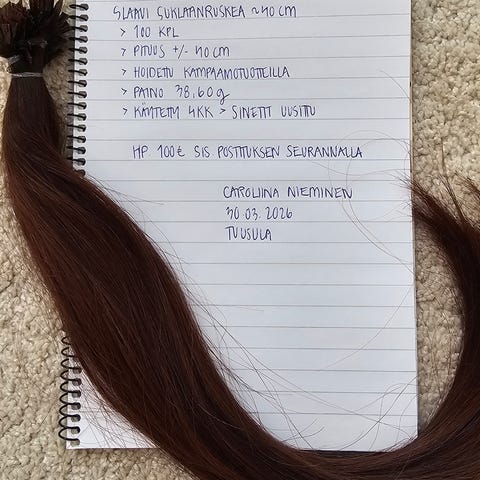 SLAAVI SUKLAANRUSKEA ~40 CM
> 100 KPL
> PITUUS +/- 40 CM
> HOIDETTU KAMPAAMOTUOTTEILLA
> PAINO 38,60g
> KÄYTETTY 4KK > SINETIT UUSITTU
HP. 100€ SIS. POSTITUKSEN SEURANNALLA
CAROLIINA NIEMINEN
30.03.2026
TUUSULA